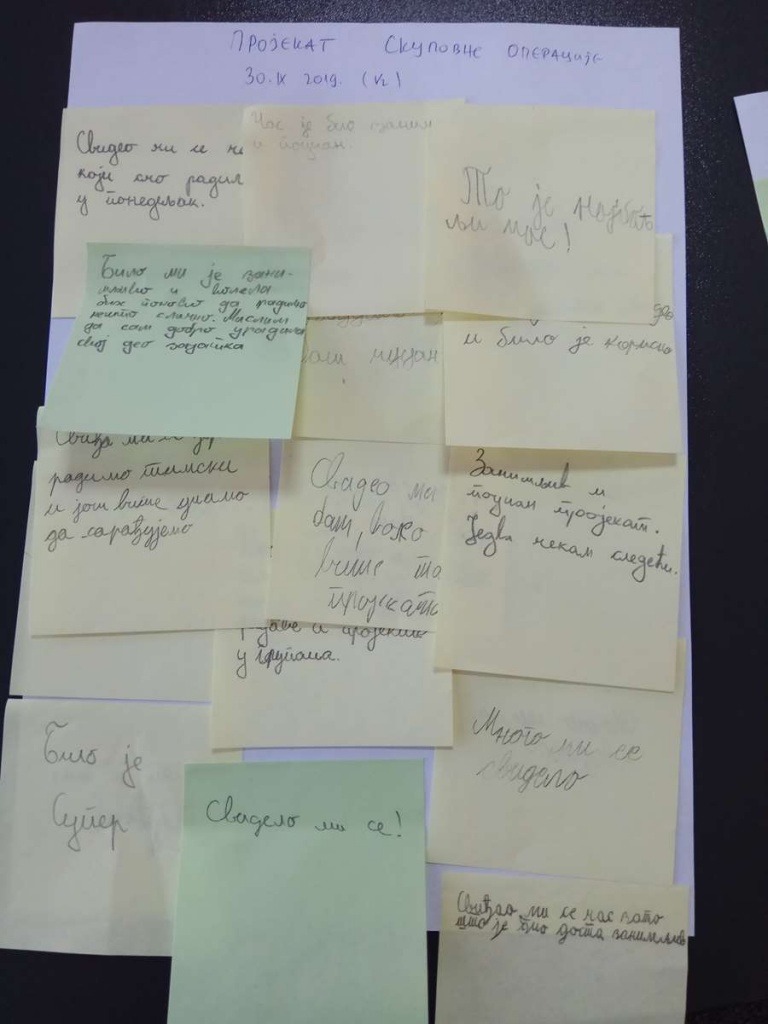 Пројекат Скуповне операције
30.IX 2019. (V2)
Свидео ми се
који смо радил
у понедељак.
Час је био заним
и поучан.
То је најбо
љи час!
Било ми је зани-
мљиво и волела
бих поново да радимо
нешто слично. Мислим
да сам добро урадила
свој део задатка
и било је корисно
Свиђа ми се
радимо тимски
и још више учимо
да сарађујемо
Свидео ми
баш, волио
више
пројеката
Занимљив и
поучан пројекат.
Једва чекам следећи.
и пројекте
у групама.
Било је
Супер
Много ми се
свидело
Свидело ми се!
Свиђао ми се час зато
што је био доста занимљив